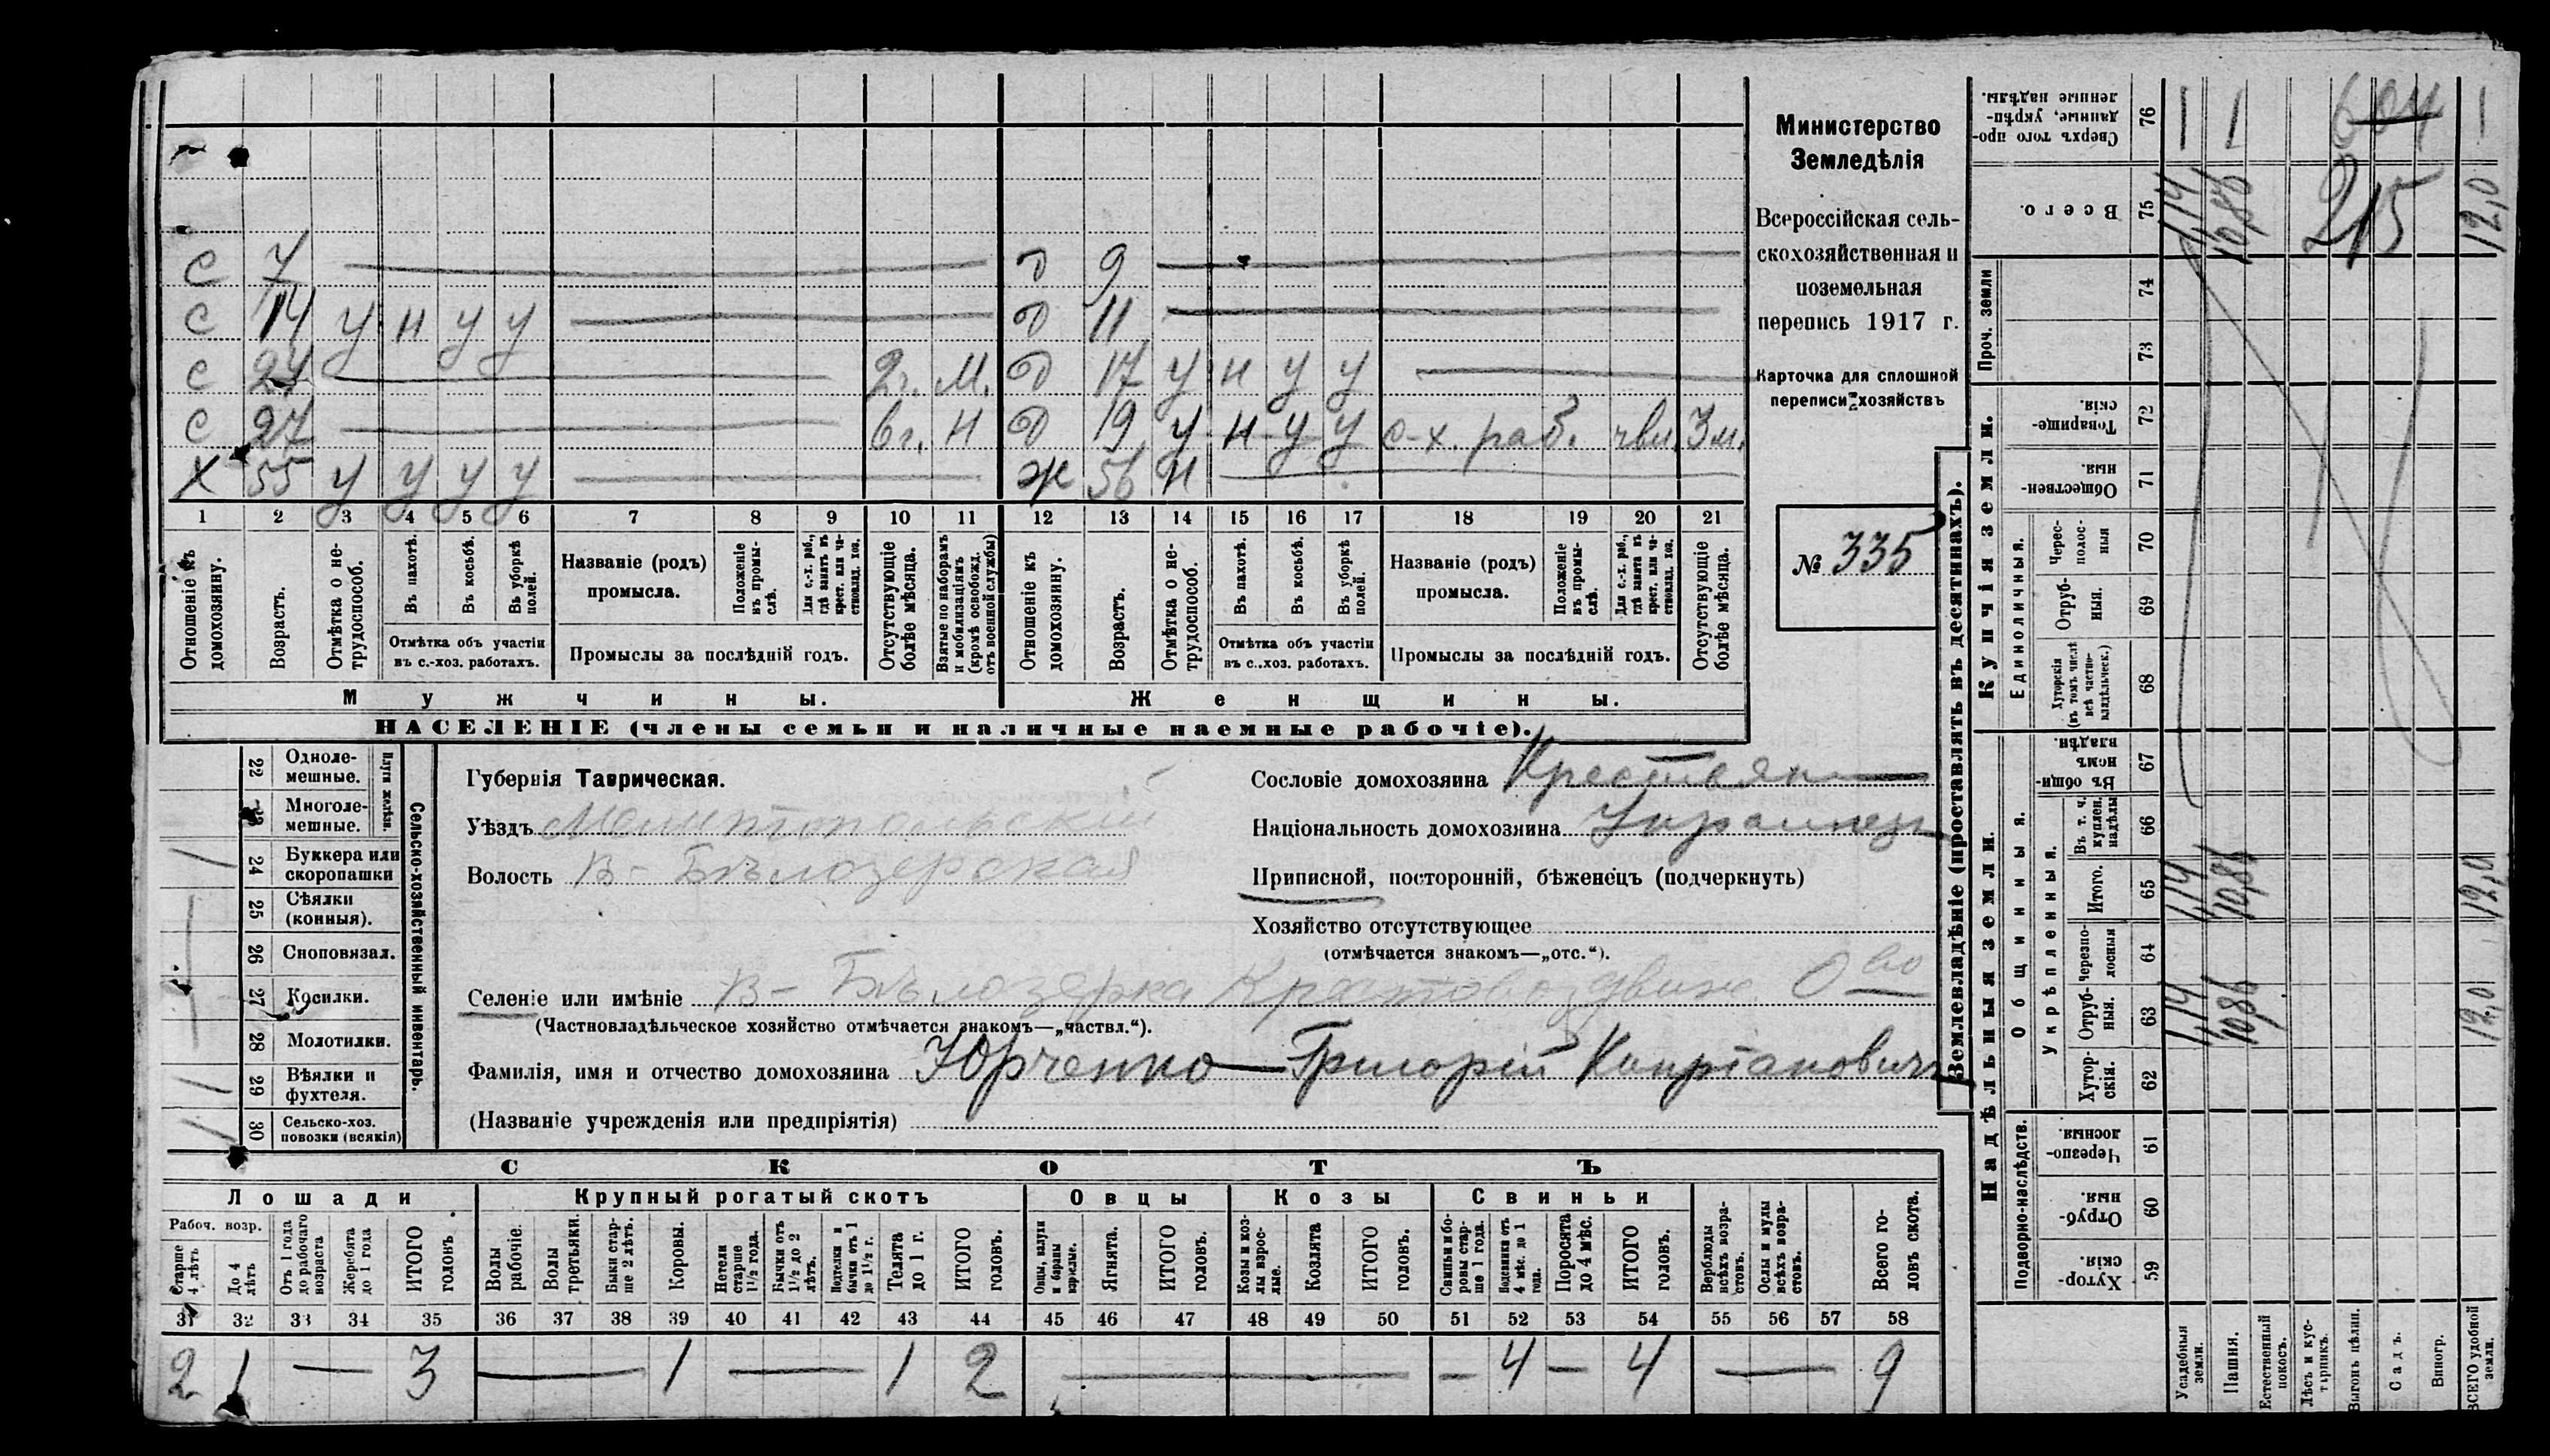 С 7 — Д 9 —
С 14 у н у у — Д 11 —
С 24 — 2 г. М. Д 17 у н у у —
С 27 — 6 г. Н Д 19 у н у у с-х. раб. чвл. 3 м.
Х 55 у у у у — Ж 56 н —
1 2 3 4 5 6 7 8 9 10 11 12 13 14 15 16 17 18 19 20 21
Отношеніе къ домохозяину.
Возрастъ.
Отмѣтка о не-трудоспособ.
Въ пахотѣ.
Въ косьбѣ.
Въ уборкѣ полей.
Отмѣтка объ участіи
въ с.-хоз. работахъ.
Названіе (родъ)
промысла.
Положеніе въ промы-слѣ.
Для с.-х. раб., гдѣ занятъ въ крест. или ча-стновлад. хоз.
Промыслы за послѣдній годъ.
Отсутствующіе болѣе мѣсяца.
Взятые по наборамъ и мобилизаціямъ (кромѣ освобожд. отъ военной службы)
Отношеніе къ домохозяину.
Возрастъ.
Отмѣтка о не-трудоспособ.
Въ пахотѣ.
Въ косьбѣ.
Въ уборкѣ полей.
Отмѣтка объ участіи
въ с.-хоз. работахъ.
Названіе (родъ)
промысла.
Положеніе въ промы-слѣ.
Для с.-х. раб., гдѣ занята въ крест. или ча-стновлад. хоз.
Промыслы за послѣдній годъ.
Отсутствующіе болѣе мѣсяца.
Мужчины. Женщины.
НАСЕЛЕНІЕ (члены семьи и наличные наемные рабочіе).
Министерство
Земледѣлія
Всероссійская сель-
скохозяйственная и
поземельная
перепись 1917 г.
Карточка для сплошной
переписи хозяйствъ
№ 335
Сельско-хозяйственный инвентарь.
Плуги желѣзн.
22 Одноле-
мешные.
23 Многоле-
мешные.
24 Буккера или
скоропашки
1
25 Сѣялки
(конныя).
—
26 Сноповязал.
27 Косилки.
28 Молотилки.
29 Вѣялки и
фухтеля.
1
30 Сельско-хоз.
повозки (всякія)
1
Губернія Таврическая.
Уѣздъ Мелитопольскій
Волость В-Бѣлозерская
Сословіе домохозяина Крестьян
Національность домохозяина Украинец
Приписной, посторонній, бѣженецъ (подчеркнуть)
Хозяйство отсутствующее
(отмѣчается знакомъ—„отс.“).
Селеніе или имѣніе В-Бѣлозерка Крестовоздвиж. О-во
(Частновладѣльческое хозяйство отмѣчается знакомъ—„частвл.“).
Фамилія, имя и отчество домохозяина Юрченко — Григорій Кипріанович
(Названіе учрежденія или предпріятія)
СКОТЪ
Лошади Крупный рогатый скотъ Овцы Козы Свиньи
Рабоч. возр.
Старше 4 лѣтъ
До 4 лѣтъ
Отъ 1 года до рабочаго возраста
Жеребята до 1 года
ИТОГО головъ
Волы рабочіе.
Волы третьяки.
Быки стар-ше 2 лѣтъ.
Коровы.
Нетели старше 1½ года.
Бычки отъ 1½ до 2 лѣтъ.
Подтелки и бычки отъ 1 до 1½ г.
Телята до 1 г.
ИТОГО головъ.
Овцы, валухи и бараны взрослые.
Ягнята.
ИТОГО головъ.
Козы и коз-лы взрос-лые.
Козлята
ИТОГО головъ.
Свиньи и бо-ровы стар-ше 1 года.
Подсвинки отъ 4 мѣс. до 1 года.
Поросята до 4 мѣс.
ИТОГО головъ.
Верблюды всѣхъ возра-стовъ.
Ослы и мулы всѣхъ возра-стовъ.
Всего го-ловъ скота.
31 32 33 34 35 36 37 38 39 40 41 42 43 44 45 46 47 48 49 50 51 52 53 54 55 56 57 58
2 1 — 3 — 1 — 1 2 — — 4 — 4 — 9
Землевладѣніе (проставлять въ десятинахъ).
Сверхъ того про-данные, укрѣп-ленные надѣлы. 76
Всего. 75
Купчія земли.
Проч. земли
74
73
Товарище-скія. 72
Обществен-ныя. 71
Единоличныя.
Черес-полос-ныя 70
Отруб-ныя. 69
Хуторскія (въ томъ числѣ всѣ частно-владѣльческ.) 68
Надѣльныя земли.
Общинныя.
Въ общин-номъ владѣн. 67
Укрѣпленныя.
Въ т. ч. куплен. надѣлы 66
Итого. 65
Черезпо-лосныя 64
Отруб-ныя. 63
Хутор-скія. 62
Подворно-наслѣдств.
Черезпо-лосныя. 61
Отруб-ныя. 60
Хутор-скія. 59
Усадебныя земли.
Пашня.
Естественный покосъ.
Лѣсъ и кус-тарникъ.
Выгонъ цѣлин.
Садъ.
Виногр.
ВСЕГО удобной земли.
— — 604 —
1,14 10,86 215 12,0
1,14 10,86 12,0
1,14 10,86 12,0